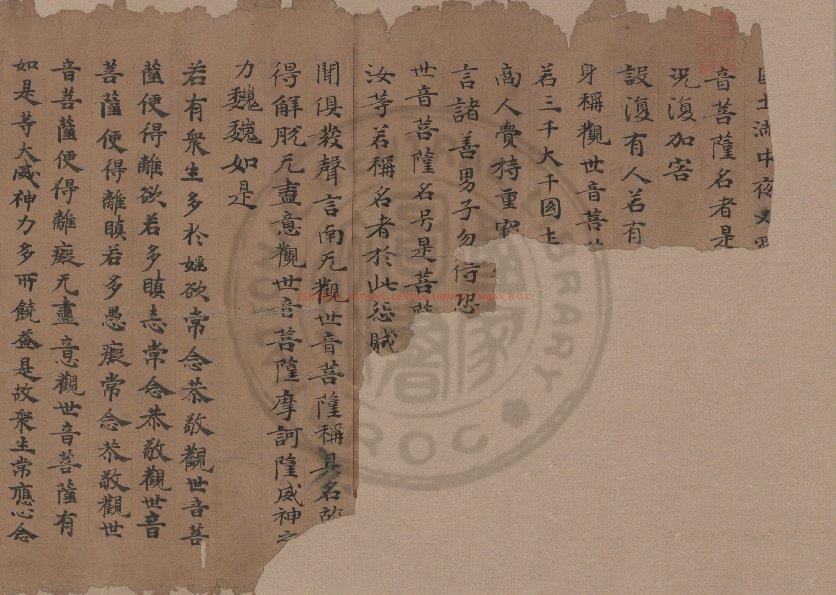 國土滿中夜叉羅
音菩薩名者是
況復加害
設復有人若有
身稱觀世音菩
若三千大千國土
商人賫持重寶
言諸善男子勿得恐
世音菩薩名号是菩薩
汝等若稱名者於此怨賊
聞俱發聲言南无觀世音菩薩稱其名故
得解脫无盡意觀世音菩薩摩訶薩威神之
力巍巍如是
若有衆生多於婬欲常念恭敬觀世音菩
薩便得離欲若多瞋恚常念恭敬觀世音
菩薩便得離瞋若多愚癡常念恭敬觀世
音菩薩便得離癡无盡意觀世音菩薩有
如是等大威神力多所饒益是故衆生常應心念